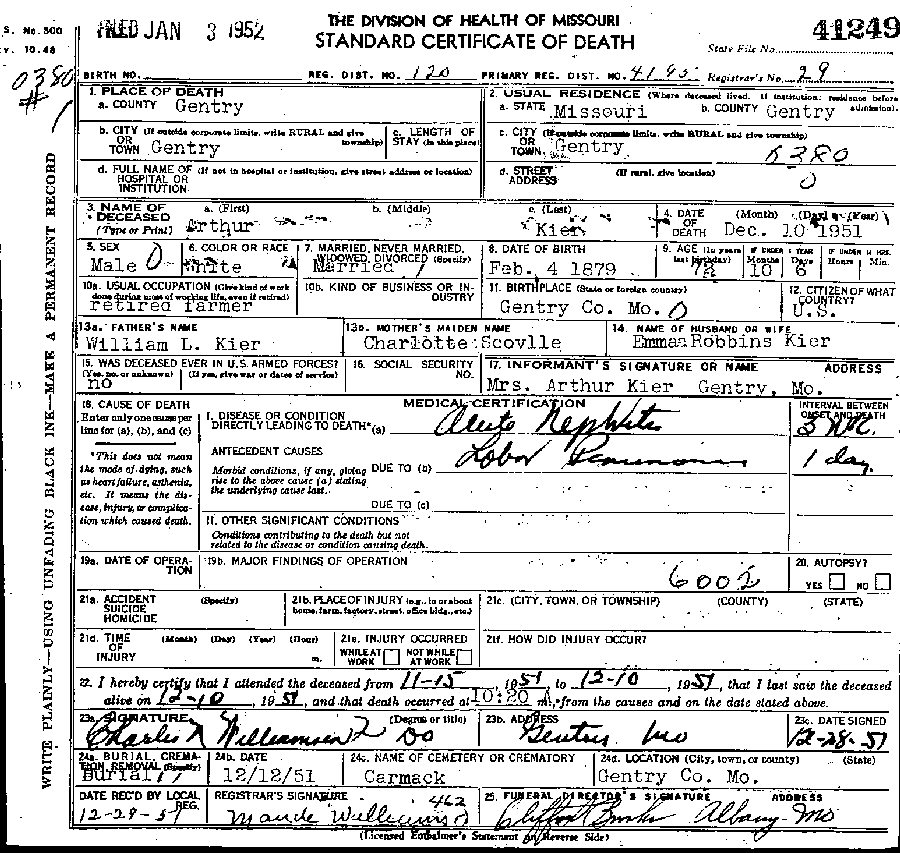 S. No. 300
FILED JAN 3 1952
THE DIVISION OF HEALTH OF MISSOURI
STANDARD CERTIFICATE OF DEATH
41249
State File No.
V. 10.48
0380
# 1
BIRTH NO. REG. DIST. NO. 120 PRIMARY REG. DIST. NO. 4195 Registrar's No. 29
WRITE PLAINLY—USING UNFADING BLACK INK—MAKE A PERMANENT RECORD
1. PLACE OF DEATH
a. COUNTY Gentry
2. USUAL RESIDENCE (Where deceased lived. If institution: residence before admission).
a. STATE Missouri b. COUNTY Gentry
b. CITY (If outside corporate limits, write RURAL and give township)
OR TOWN Gentry
c. LENGTH OF STAY (in this place)
c. CITY (If outside corporate limits, write RURAL and give township)
OR TOWN Gentry
0380
d. FULL NAME OF (If not in hospital or institution, give street address or location)
HOSPITAL OR INSTITUTION
d. STREET ADDRESS (If rural, give location)
0
3. NAME OF DECEASED (Type or Print)
a. (First) Arthur b. (Middle) c. (Last) Kier
4. DATE OF DEATH (Month) (Day) (Year)
Dec. 10 1951
5. SEX Male 0
6. COLOR OR RACE White
7. MARRIED, NEVER MARRIED, WIDOWED, DIVORCED (Specify)
Married 1
8. DATE OF BIRTH
Feb. 4 1879
9. AGE (In years last birthday) 72
IF UNDER 1 YEAR Months 10 Days 6
IF UNDER 24 HRS. Hours Min.
10a. USUAL OCCUPATION (Give kind of work done during most of working life, even if retired)
retired farmer
10b. KIND OF BUSINESS OR INDUSTRY
11. BIRTHPLACE (State or foreign country)
Gentry Co. Mo. 0
12. CITIZEN OF WHAT COUNTRY?
U.S.
13a. FATHER'S NAME
William L. Kier
13b. MOTHER'S MAIDEN NAME
Charlotte Scovlle
14. NAME OF HUSBAND OR WIFE
Emma Robbins Kier
15. WAS DECEASED EVER IN U.S. ARMED FORCES?
(Yes, no, or unknown) (If yes, give war or dates of service)
no
16. SOCIAL SECURITY NO.
17. INFORMANT'S SIGNATURE OR NAME ADDRESS
Mrs. Arthur Kier Gentry, Mo.
18. CAUSE OF DEATH
Enter only one cause per line for (a), (b), and (c)
*This does not mean the mode of dying, such as heart failure, asthenia, etc. It means the disease, injury, or complication which caused death.
MEDICAL CERTIFICATION
INTERVAL BETWEEN ONSET AND DEATH
I. DISEASE OR CONDITION DIRECTLY LEADING TO DEATH* (a) Acute Nephritis
ANTECEDENT CAUSES
Morbid conditions, if any, giving rise to the above cause (a) stating the underlying cause last.
DUE TO (b) Lobar Pneumonia 1 day
DUE TO (c)
II. OTHER SIGNIFICANT CONDITIONS
Conditions contributing to the death but not related to the disease or condition causing death.
19a. DATE OF OPERATION
19b. MAJOR FINDINGS OF OPERATION
6002
20. AUTOPSY?
YES NO
21a. ACCIDENT SUICIDE HOMICIDE (Specify)
21b. PLACE OF INJURY (e.g., in or about home, farm, factory, street, office bldg., etc.)
21c. (CITY, TOWN, OR TOWNSHIP) (COUNTY) (STATE)
21d. TIME OF INJURY (Month) (Day) (Year) (Hour) m.
21e. INJURY OCCURRED
WHILE AT WORK NOT WHILE AT WORK
21f. HOW DID INJURY OCCUR?
22. I hereby certify that I attended the deceased from 11-15 1951 to 12-10, 1951, that I last saw the deceased
alive on 12-10 1951, and that death occurred at 10:20 A m., from the causes and on the date stated above.
23a. SIGNATURE (Degree or title)
Charles N Williamson DO
23b. ADDRESS
Gentry Mo
23c. DATE SIGNED
12-28-51
24a. BURIAL, CREMATION, REMOVAL (Specify)
Burial
24b. DATE
12/12/51
24c. NAME OF CEMETERY OR CREMATORY
Carmack
24d. LOCATION (City, town, or county) (State)
Gentry Co. Mo.
DATE REC'D BY LOCAL REG.
12-29-51
REGISTRAR'S SIGNATURE 462
Maude Williams
25. FUNERAL DIRECTOR'S SIGNATURE ADDRESS
Clifford Albany Mo
(Licensed Embalmer's Statement on Reverse Side)